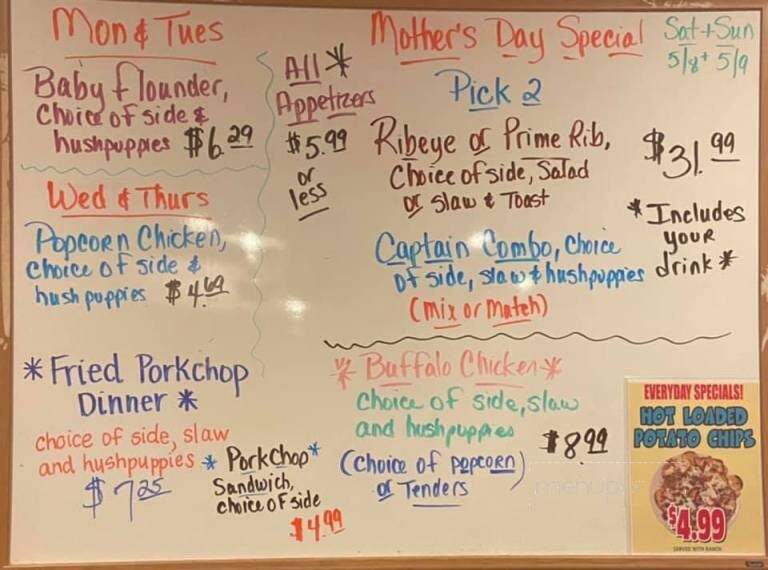 Mon & Tues
Baby flounder,
choice of side &
hushpuppies $6.29
Wed & Thurs
Popcorn Chicken,
choice of side &
hush puppies $4.69
All*
Appetizers
$5.99
or
less
Mother's Day Special
Sat + Sun
5/8 + 5/9
Pick 2
Ribeye or Prime Rib,
Choice of side, Salad
or slaw & Toast
$31.99
*Includes
your
drink*
Captain Combo, choice
of side, slaw & hushpuppies
(mix or match)
*Fried Porkchop
Dinner*
choice of side, slaw
and hushpuppies
$7.25
*Porkchop*
Sandwich,
choice of side
$4.99
*Buffalo Chicken*
choice of side, slaw
and hushpuppies
(Choice of popcorn)
or Tenders
$8.99
EVERYDAY SPECIALS!
HOT LOADED
POTATO CHIPS
$4.99
SERVED WITH RANCH